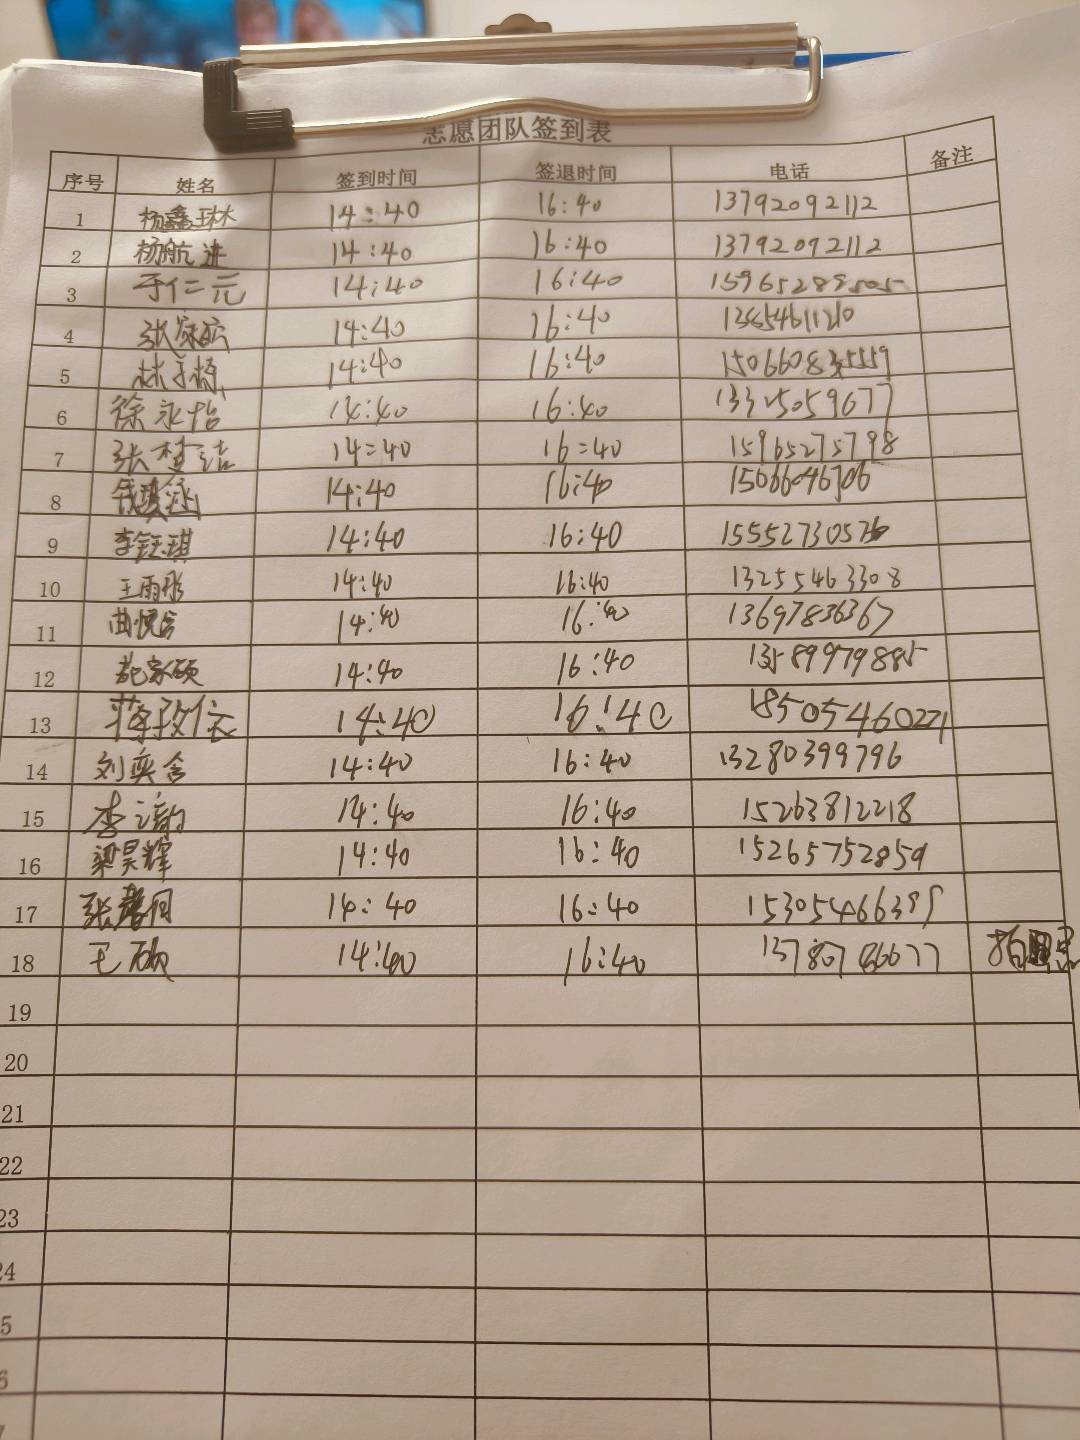 志愿团队签到表
序号 姓名 签到时间 签退时间 电话 备注
1 杨鑫琳 14:40 16:40 13792092112
2 杨航进 14:40 16:40 13792092112
3 于仁元 14:40 16:40
4 14:40 16:40
5 14:40 16:40
6 徐永怡 14:40 16:40 13325059677
7 张楚洁 14:40 16:40 15965275798
8 14:40 16:40 15066046706
9 李钰琪 14:40 16:40
10 王雨彤 14:40 16:40 13255463308
11 曲悦含 14:40 16:40 13697836367
12 14:40 16:40 13589979885
13 14:40 16:40 18505460271
14 刘奕含 14:40 16:40 13280399796
15 14:40 16:40 15263812218
16 梁昊辉 14:40 16:40 15265752859
17 14:40 16:40
18 王硕 14:40 16:40
19
20
21
22
23
24